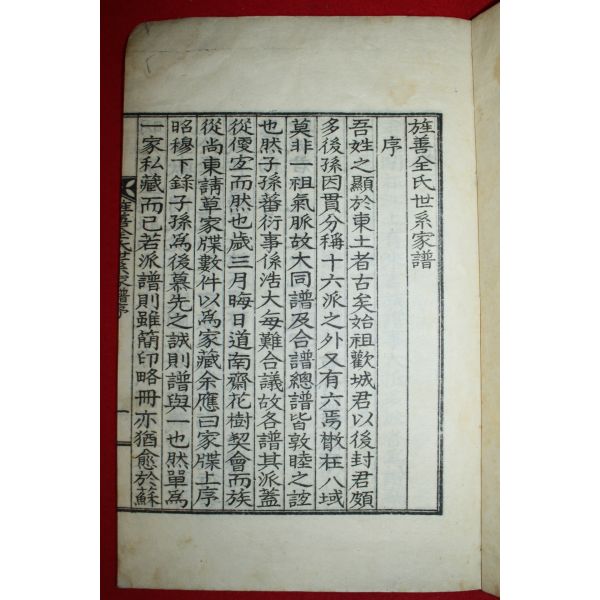 旌善全氏世系家譜
序
吾姓之顯於東土者古矣始祖歡城君以後封君頗
多後孫因貫分稱十六派之外又有六焉散在八域
莫非一祖氣脈故大同譜及合譜總譜皆敦睦之誼
也然子孫蕃衍事係浩大每難合議故各譜其派蓋
從便宜而然也歲三月晦日道南齋花樹契會而族
從尚東請草家牒數件以爲家藏余應曰家牒上序
昭穆下錄子孫為後慕先之誠則譜與一也然單為
一家私藏而已若派譜則雖簡印略冊亦猶愈於蘇
旌善全氏世系家譜序 一